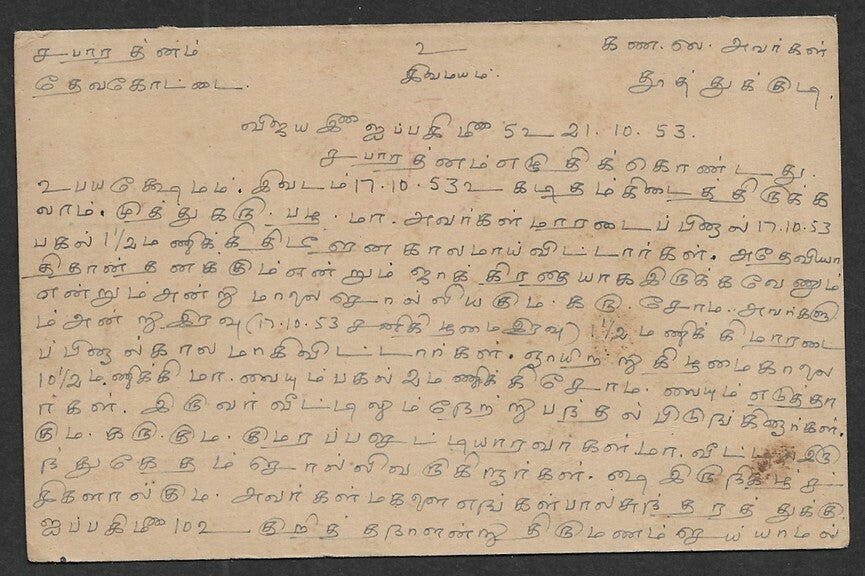 சபாரத்னம் உ கண. லெ. அவர்கள்
தேவகோட்டை. சிவமயம். தூத்துக்குடி.
விஜய ௵ ஐப்பசி ௴ 5௳ 21.10.53.
சபாரத்னம் எழுதிக்கொண்டது.
உபயக்ஷேமம். இவடம் 17.10.53௳ கடிதம் கிடைத்திருக்க
லாம். முத்துகரு. பழ. மா. அவர்கள் மாரடைப்பினால் 17.10.53
பகல் 1½ மணிக்கி திடீரென காலமாய்விட்டார்கள். அதேவியா
திதான் தனக்கும் என்றும் ஜாக்கிரதையாக இருக்கவேணும்
என்றும் அன்று மாலை சொல்லிய கும. கரு. சோம. அவர்களு
ம் அன்று இரவு (17.10.53 சனிகிழமை இரவு) 1½ மணிக்கி மாரடை
ப்பினால் காலமாகிவிட்டார்கள். ஞாயிற்று கிழமை காலை
10½ மணிக்கி மா. வையும் பகல் 2 மணிக்கி சோம. வையும் எடுத்தா
ர்கள். இருவர் வீட்டிலும் நேற்று பந்தல் பிடுங்கினார்கள்.
கும. கரு. கும. குமரப்ப செட்டியாரவர்கள் மா. வீட்ட இரு
ந்து கேதம் சொல்லிவருகிறார்கள். இரு
களால் கும. அவர்கள் மகளை எங்கள் பால சுந்தரத்துக்கு
ஐப்பசி ௴ 10௳ குறித்தநாளன்று திருமணம் செய்யாமல்